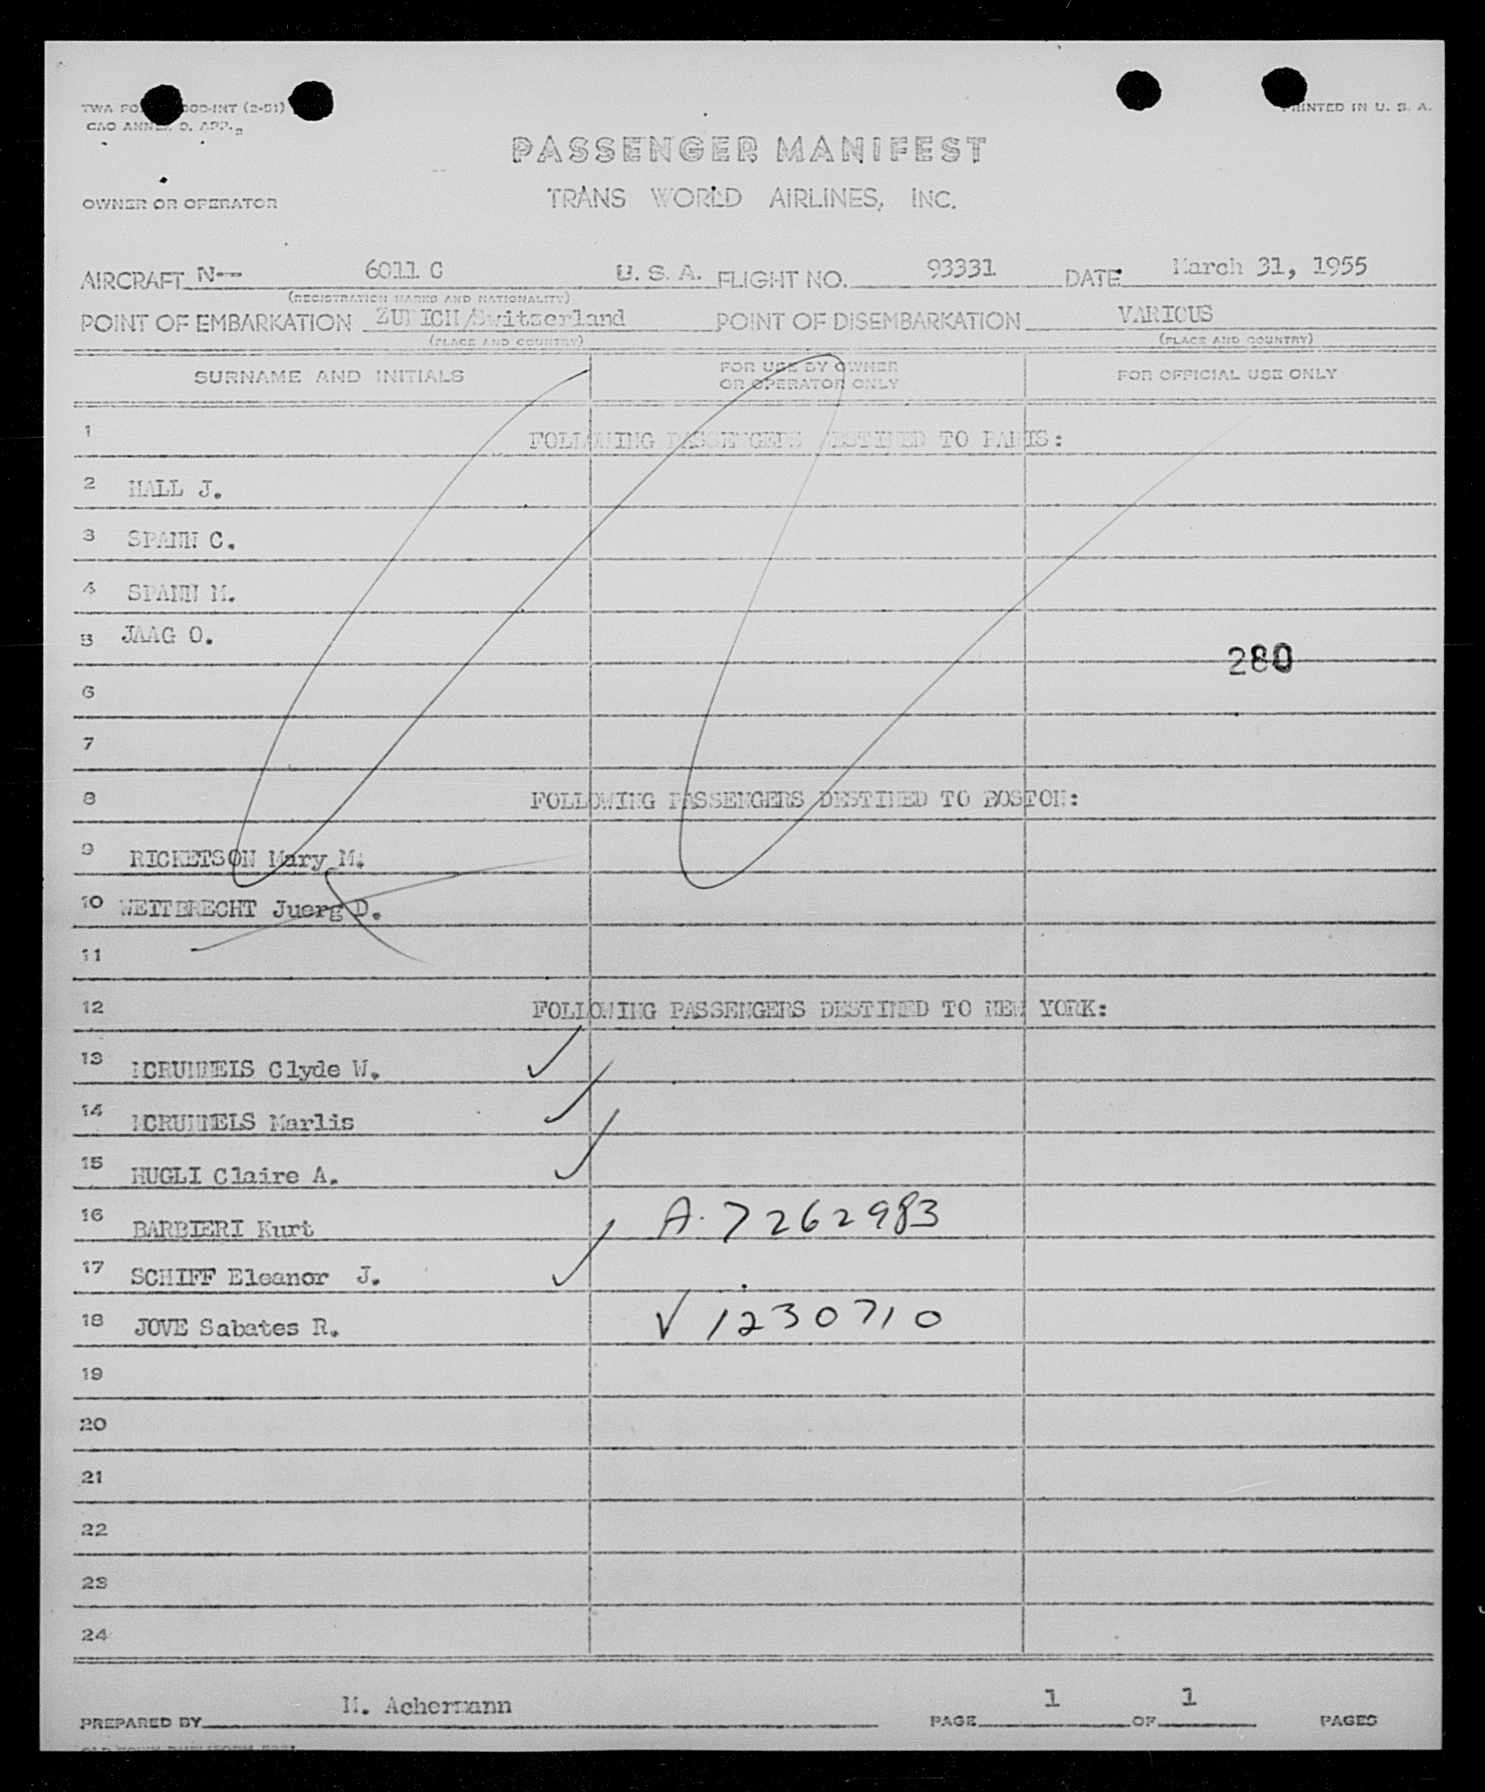 TWA FO 000-INT (2-51)
PRINTED IN U. S. A.
CAO ANNEX 9, APP.
PASSENGER MANIFEST
OWNER OR OPERATOR TRANS WORLD AIRLINES, INC.
AIRCRAFT N-- 6011 C U. S. A. FLIGHT NO. 93331 DATE March 31, 1955
(REGISTRATION MARKS AND NATIONALITY)
POINT OF EMBARKATION ZURICH/Switzerland POINT OF DISEMBARKATION VARIOUS
(PLACE AND COUNTRY) (PLACE AND COUNTRY)
SURNAME AND INITIALS FOR USE BY OWNER OR OPERATOR ONLY FOR OFFICIAL USE ONLY
1 FOLLOWING PASSENGERS DESTINED TO PARIS:
2 HALL J.
3 SPANN C.
4 SPANN M.
5 JAAG O.
280
6
7
8 FOLLOWING PASSENGERS DESTINED TO BOSTON:
9 RICKETSON Mary M.
10 WEITBRECHT Juerg D.
11
12 FOLLOWING PASSENGERS DESTINED TO NEW YORK:
13 Clyde W.
14 Marlis
15 HUGLI Claire A.
16 BARBIERI Kurt A.7262983
17 SCHIFF Eleanor J.
18 JOVE Sabates R. V 1230710
19
20
21
22
23
24
PREPARED BY Achermann PAGE 1 OF 1 PAGES